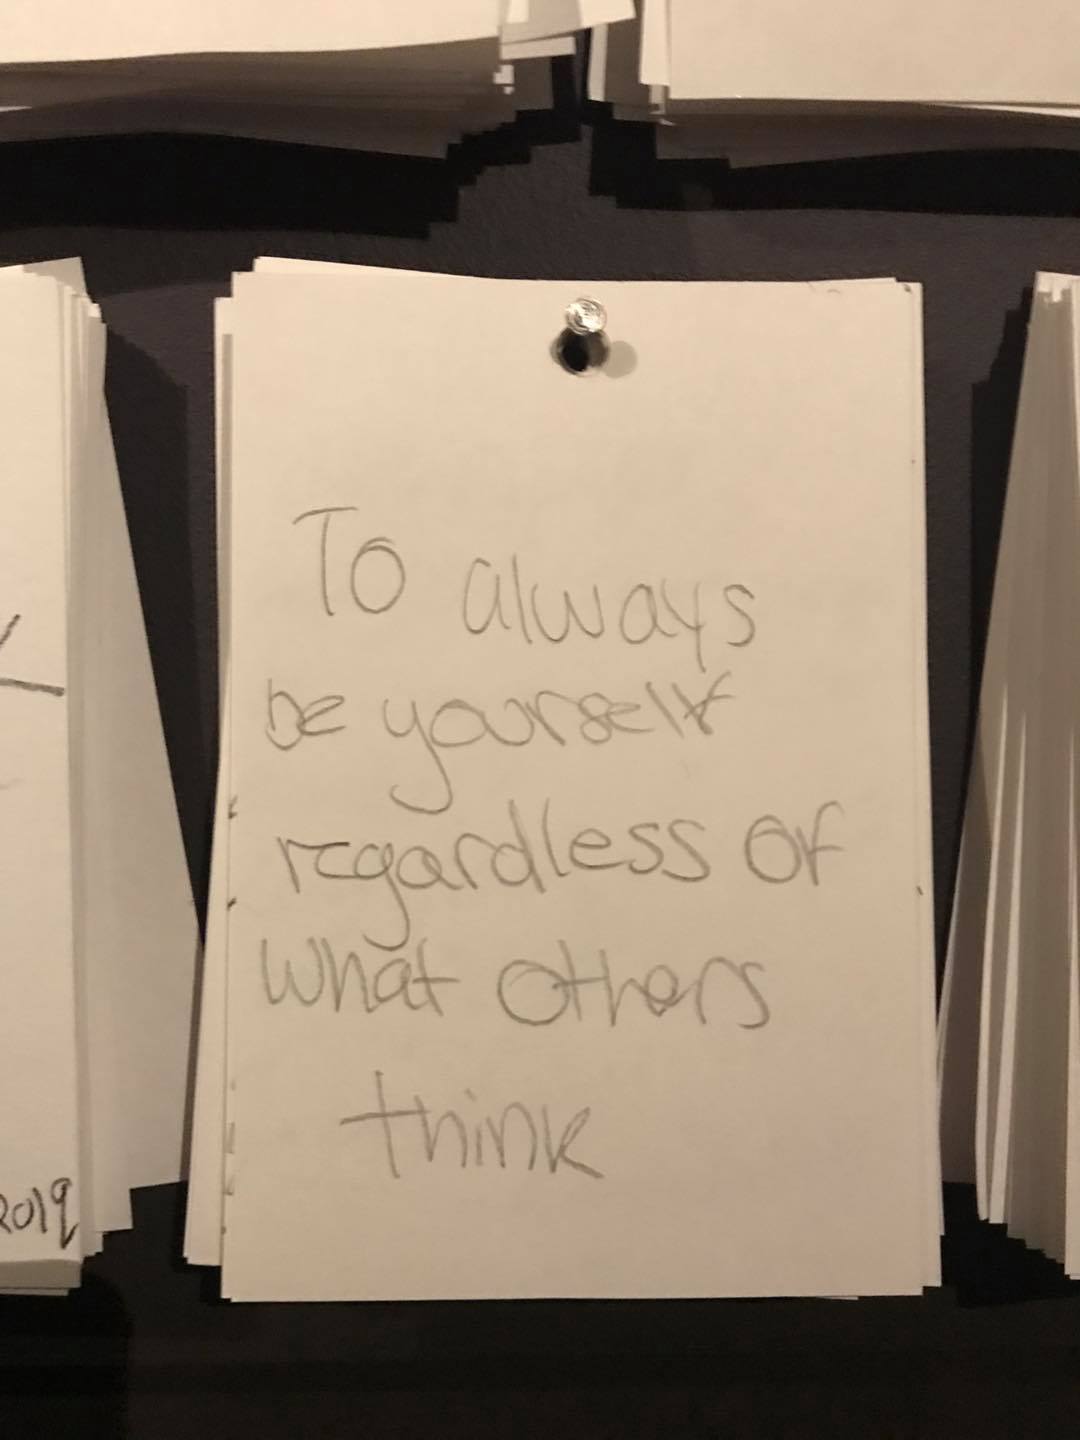 To always
be yourself
regardless of
what others
think
2019